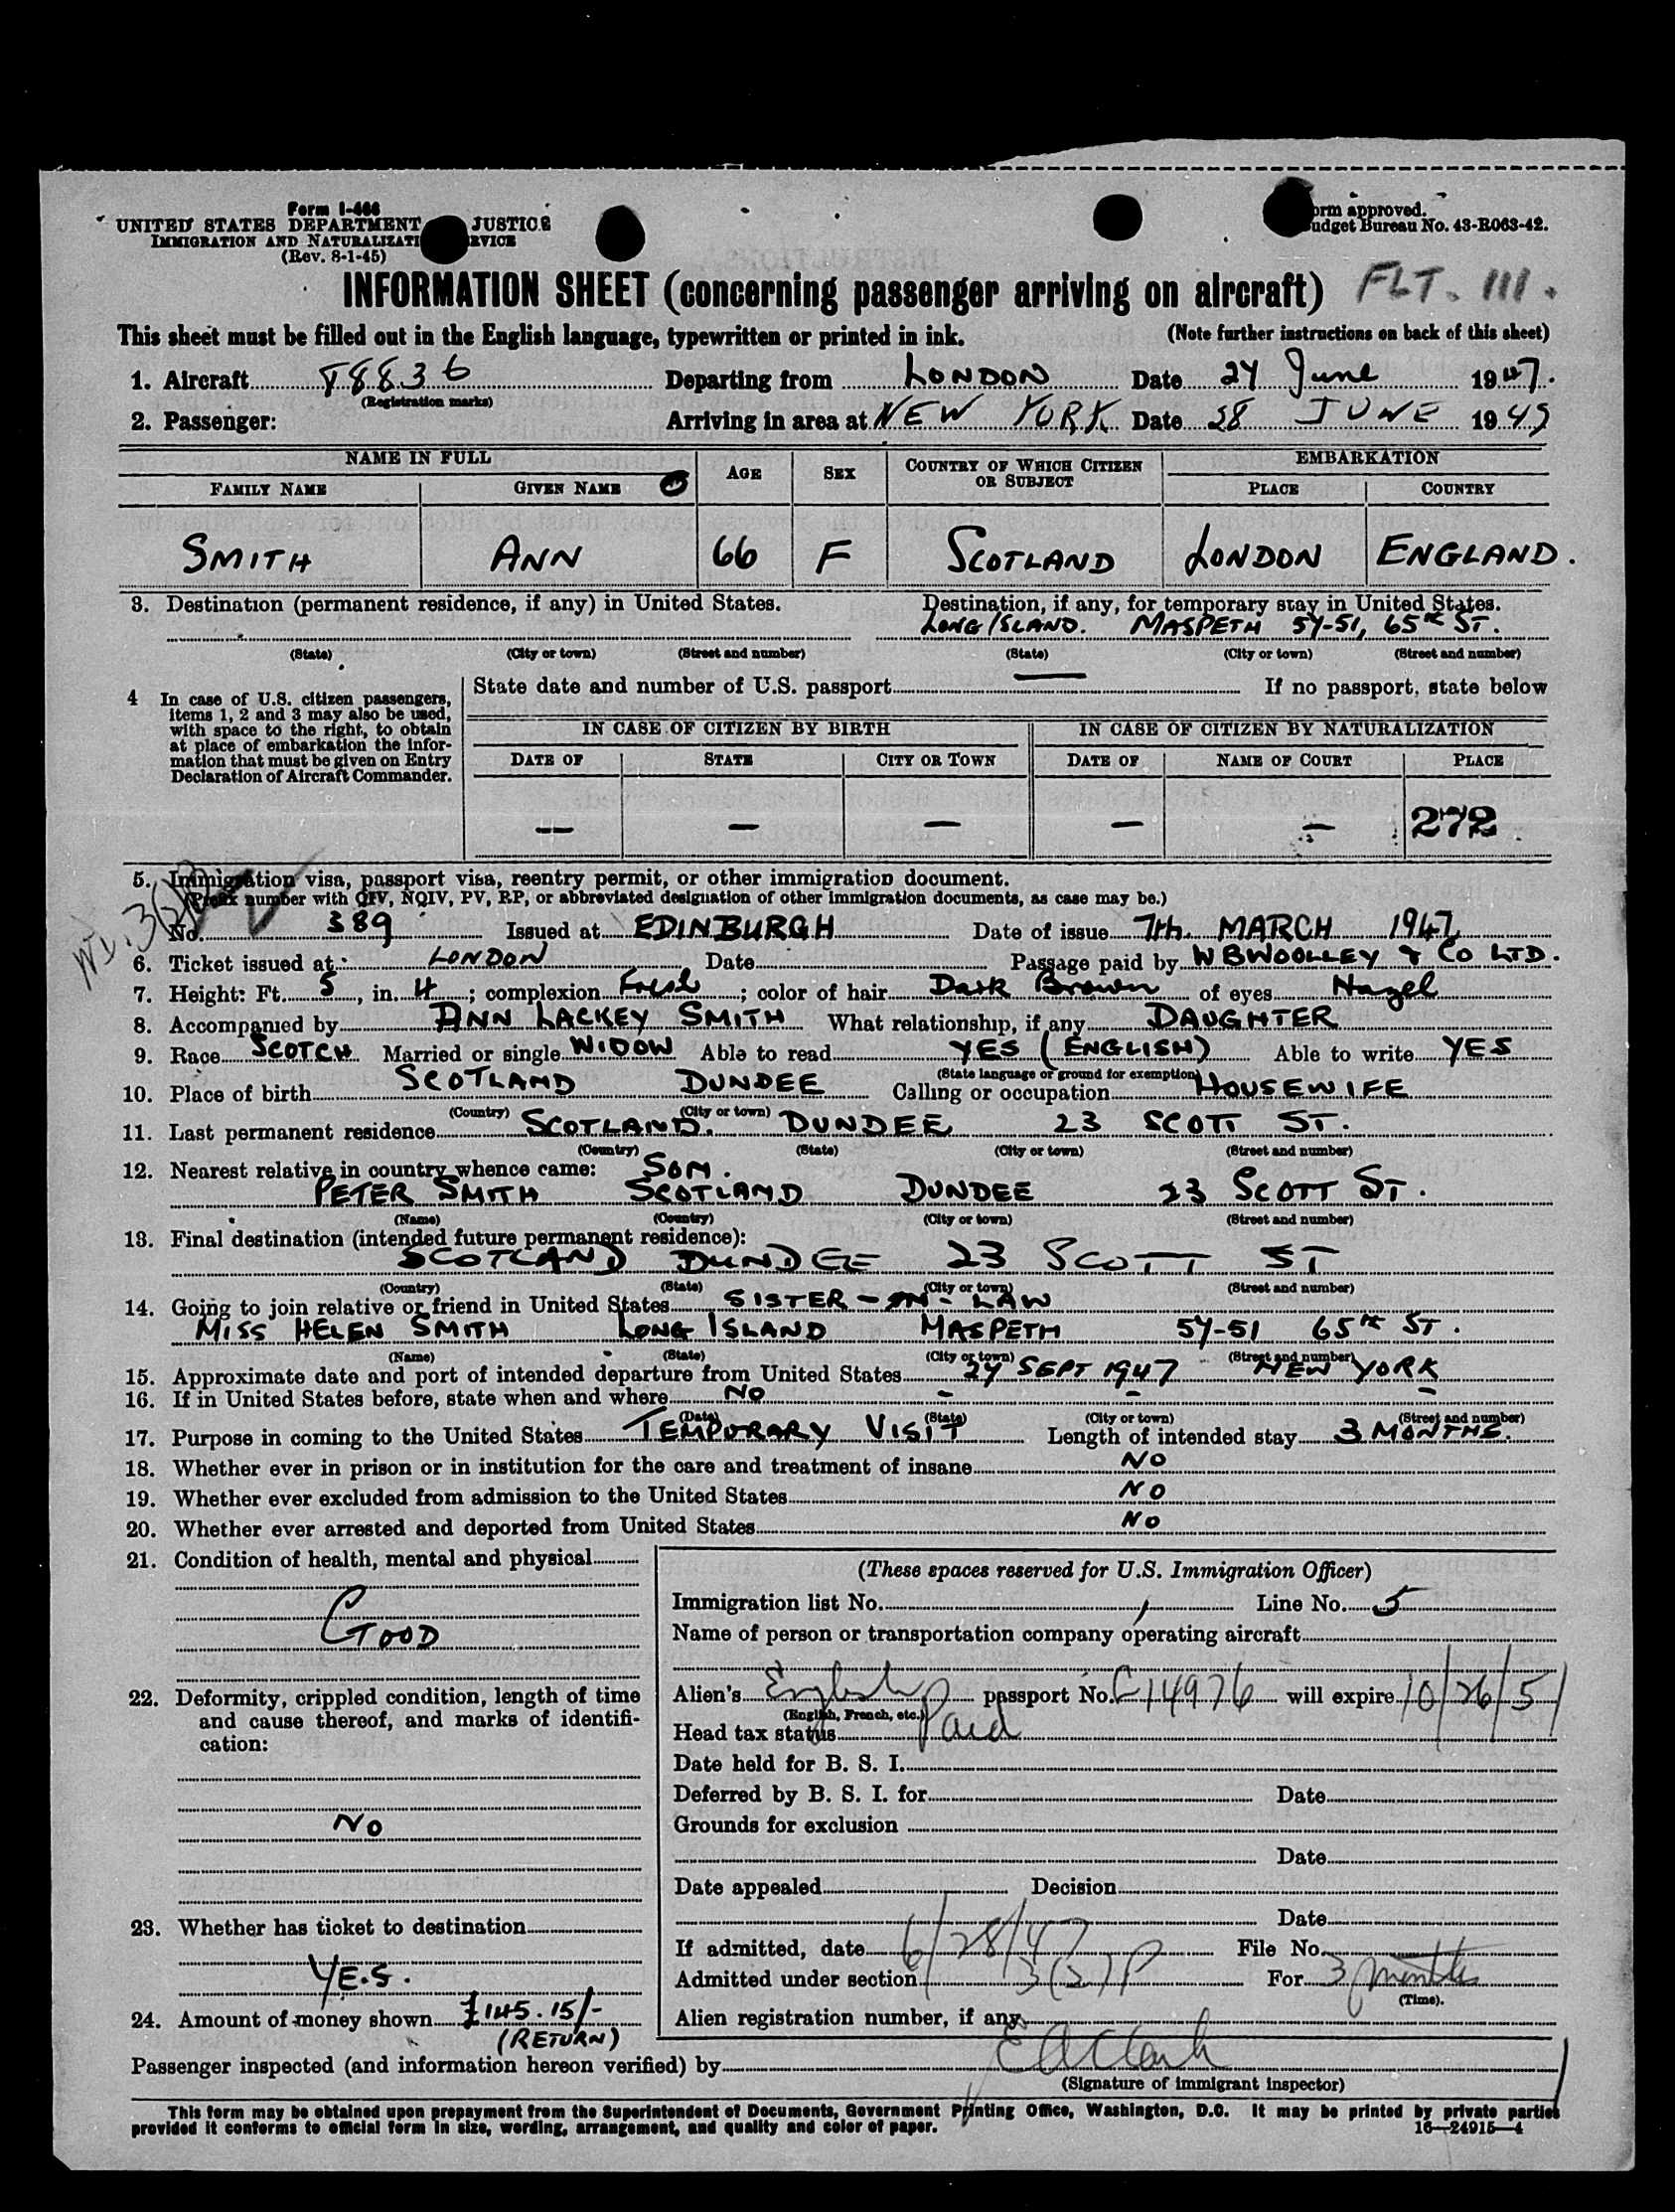 Form I-466
UNITED STATES DEPARTMENT JUSTICE
IMMIGRATION AND NATURALIZATI RVICE
(Rev. 8-1-45)
orm approved.
udget Bureau No. 43-R063-42.
INFORMATION SHEET (concerning passenger arriving on aircraft) FLT. 111.
This sheet must be filled out in the English language, typewritten or printed in ink. (Note further instructions on back of this sheet)
1. Aircraft 8836 Departing from LONDON Date 24 June 1947.
(Registration marks)
2. Passenger: Arriving in area at NEW YORK Date 28 JUNE 1947
NAME IN FULL AGE SEX COUNTRY OF WHICH CITIZEN OR SUBJECT EMBARKATION
FAMILY NAME GIVEN NAME PLACE COUNTRY
SMITH ANN 66 F SCOTLAND LONDON ENGLAND.
3. Destination (permanent residence, if any) in United States. Destination, if any, for temporary stay in United States.
LONG ISLAND. MASPETH 54-51, 65TH ST.
(State) (City or town) (Street and number) (State) (City or town) (Street and number)
4 In case of U.S. citizen passengers, items 1, 2 and 3 may also be used, with space to the right, to obtain at place of embarkation the information that must be given on Entry Declaration of Aircraft Commander.
State date and number of U.S. passport — If no passport, state below
IN CASE OF CITIZEN BY BIRTH IN CASE OF CITIZEN BY NATURALIZATION
DATE OF STATE CITY OR TOWN DATE OF NAME OF COURT PLACE
— — — — — 272
5. Immigration visa, passport visa, reentry permit, or other immigration document.
(Prefix number with QIV, NQIV, PV, RP, or abbreviated designation of other immigration documents, as case may be.)
No. 389 Issued at EDINBURGH Date of issue 7th. MARCH 1947
6. Ticket issued at: LONDON Date Passage paid by W B WOOLLEY & CO LTD.
7. Height: Ft. 5, in. 4; complexion Fresh; color of hair Dark Brown of eyes Hazel
8. Accompanied by ANN LACKEY SMITH What relationship, if any DAUGHTER
9. Race SCOTCH Married or single WIDOW Able to read YES (ENGLISH) Able to write YES
(State language or ground for exemption)
10. Place of birth SCOTLAND DUNDEE Calling or occupation HOUSEWIFE
(Country) (City or town)
11. Last permanent residence SCOTLAND. DUNDEE 23 SCOTT ST.
(Country) (State) (City or town) (Street and number)
12. Nearest relative in country whence came: SON.
PETER SMITH SCOTLAND DUNDEE 23 SCOTT ST.
(Name) (Country) (City or town) (Street and number)
13. Final destination (intended future permanent residence):
SCOTLAND DUNDEE 23 SCOTT ST
(Country) (State) (City or town) (Street and number)
14. Going to join relative or friend in United States SISTER-IN-LAW
MISS HELEN SMITH LONG ISLAND MASPETH 54-51 65TH ST.
(Name) (State) (City or town) (Street and number)
15. Approximate date and port of intended departure from United States 24 SEPT 1947 NEW YORK
16. If in United States before, state when and where NO - - -
(Date) (State) (City or town) (Street and number)
17. Purpose in coming to the United States TEMPORARY VISIT Length of intended stay 3 MONTHS.
18. Whether ever in prison or in institution for the care and treatment of insane NO
19. Whether ever excluded from admission to the United States NO
20. Whether ever arrested and deported from United States NO
21. Condition of health, mental and physical
GOOD
22. Deformity, crippled condition, length of time and cause thereof, and marks of identification:
NO
23. Whether has ticket to destination
YES.
24. Amount of money shown £145.15/-
(RETURN)
(These spaces reserved for U.S. Immigration Officer)
Immigration list No. 1 Line No. 5
Name of person or transportation company operating aircraft
Alien's English passport No. C14976 will expire 10/26/51
(English, French, etc.)
Head tax status Paid
Date held for B. S. I.
Deferred by B. S. I. for Date
Grounds for exclusion
Date
Date appealed Decision
Date
If admitted, date 6/28/47 File No.
Admitted under section 3(2)P For 3 months
(Time).
Alien registration number, if any
Passenger inspected (and information hereon verified) by E A Clark
(Signature of immigrant inspector)
This form may be obtained upon prepayment from the Superintendent of Documents, Government Printing Office, Washington, D.C. It may be printed by private parties
provided it conforms to official form in size, wording, arrangement, and quality and color of paper. 16—24915-4